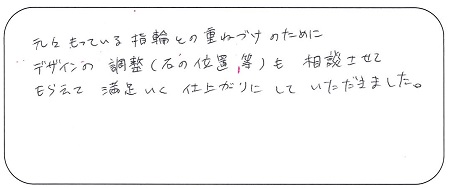 元々もっている指輪との重ねづけのために
デザインの調整(石の位置等)も相談させて
もらえて満足いく仕上がりにしていただきました。